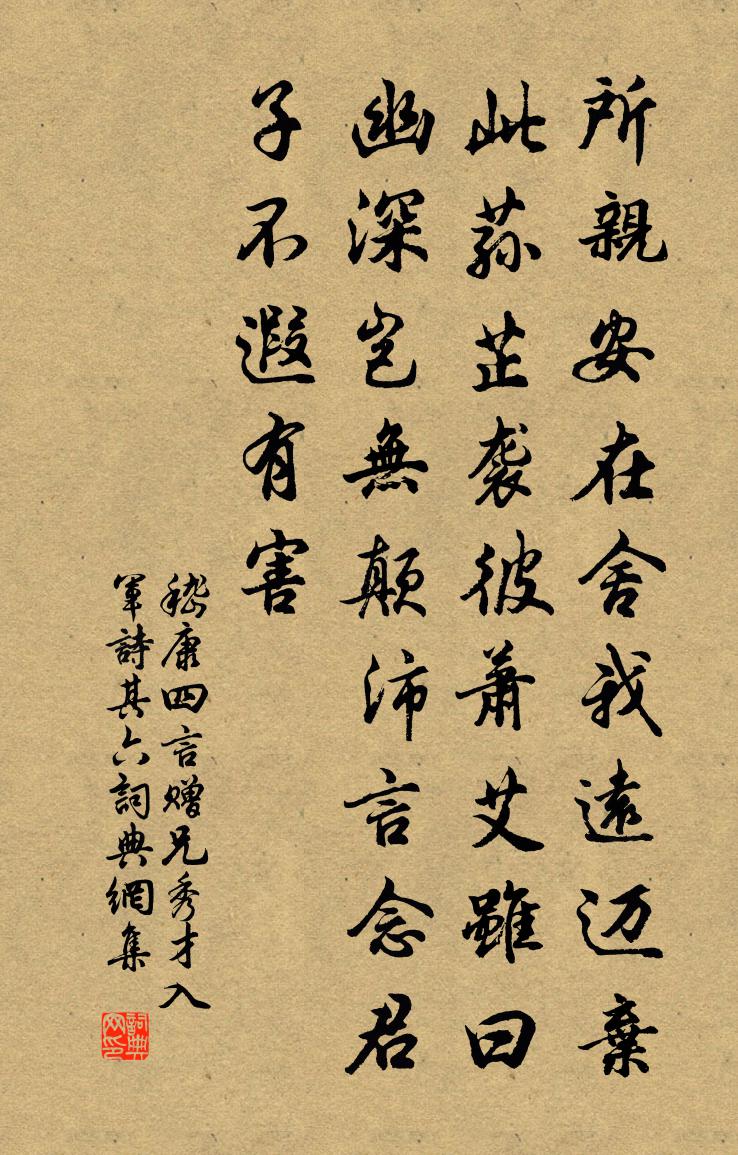 所親安在舍我遠迈棄
此蓀芷袭彼蕭艾雖曰
幽深岂無顛沛言念君
子不遐有害
嵇康四言贈兄秀才入
軍詩其六詞典網集
詞典网印